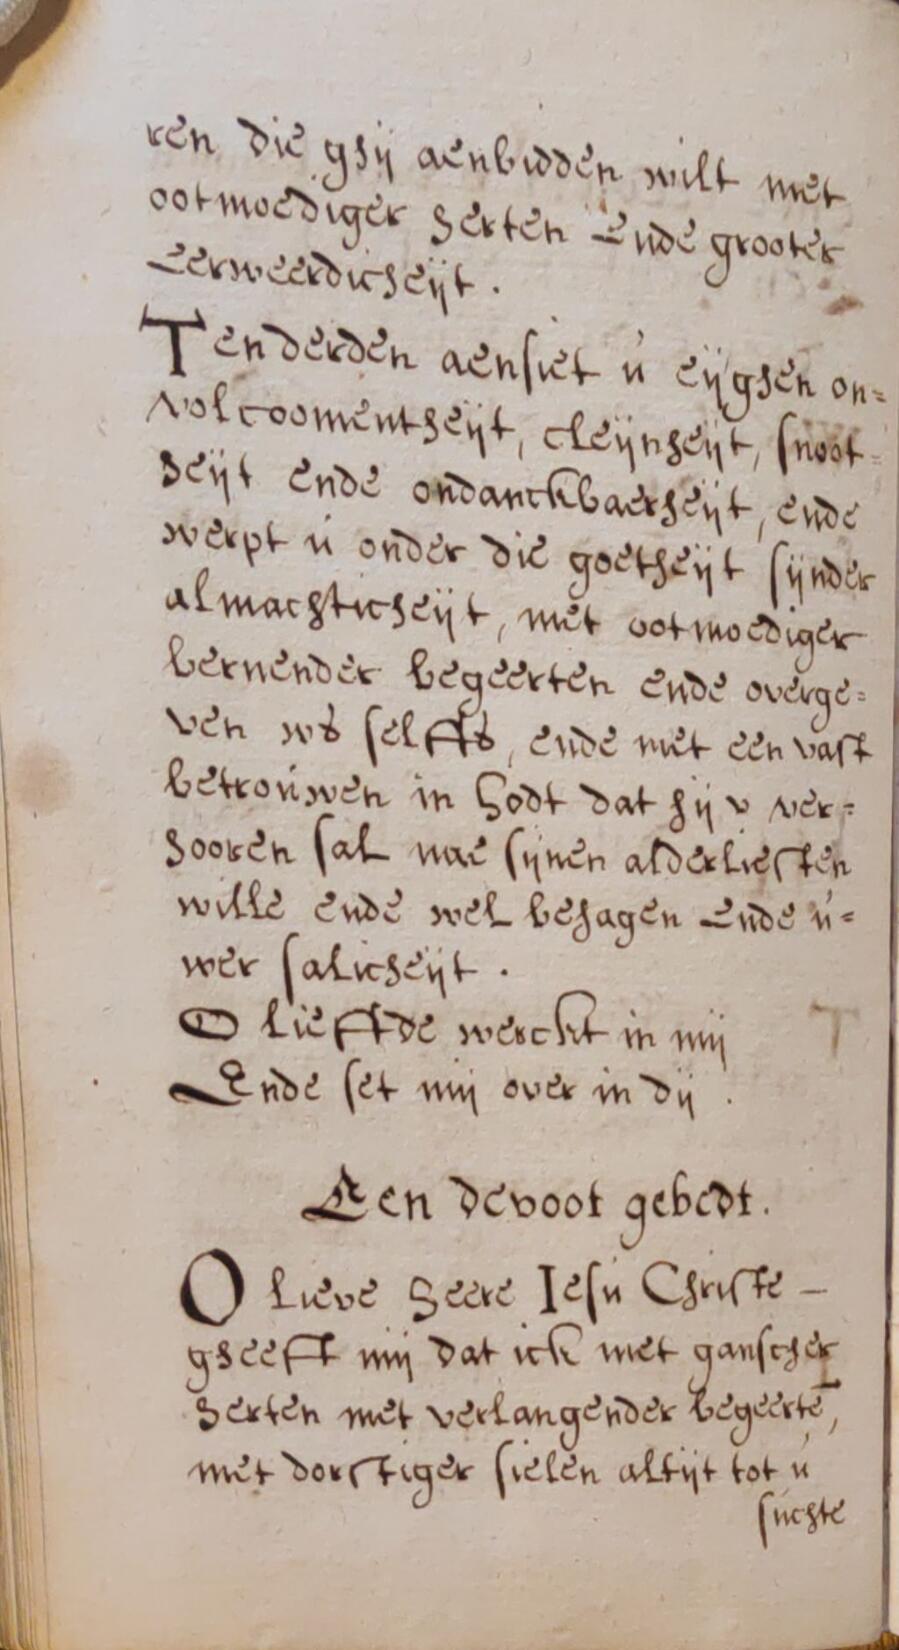 ren die ghij aenbidden wilt met
ootmoediger herten Ende grooter
Eerweerdicheijt.
Ten derden aensiet ú eijghen on=
volcoomentheijt, cleijnheijt, snoot=
heijt ende ondanckbaerheijt, ende
werpt ú onder die goetheijt sijnder
almachticheijt, met ootmoediger
bernender begeerten ende overge=
ven ws selffs, ende met een vast
betroúwen in Godt dat hij v ver=
hooren sal nae sijnen alderliefsten
wille ende wel behagen Ende ú=
wer salicheijt.
O lieffde werckt in mij
Ende set mij over in dij.
Een devoot gebedt.
O lieve heere Iesú Christe –
gheefft mij dat ick met ganscher
herten met verlangender begeertē,
met dorstiger sielen altijt tot ú
súchte